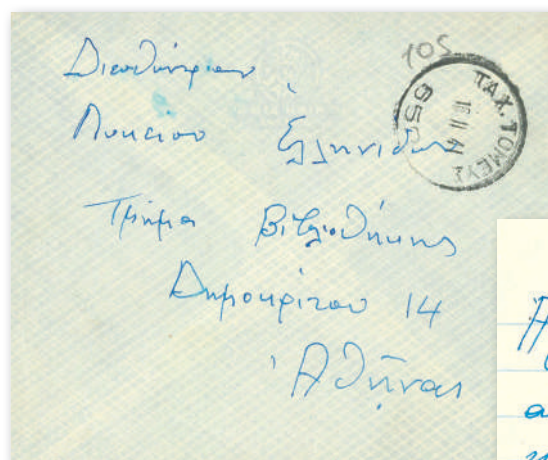 105
Διευθύντριαν
Λυκείου Ἑλληνίδων
Τμῆμα Βιβλιοθήκης
Δημοκρίτου 14
Ἀθήνας
ΤΑΧ. ΤΟΜΕΥΣ
655